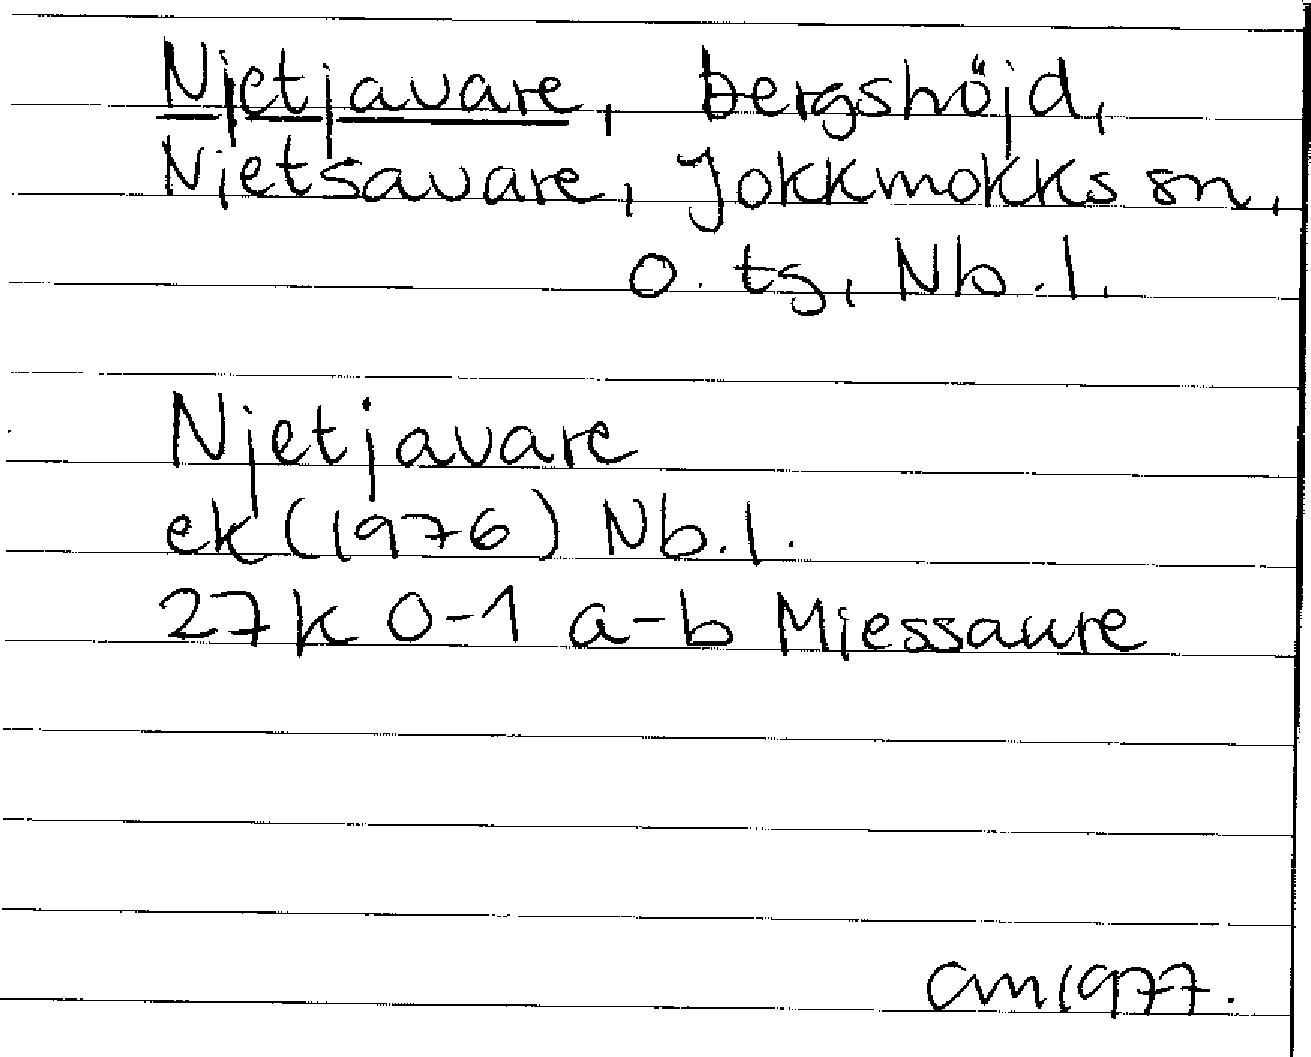 Njetjavare, bergshöjd,
Njetsavare, Jokkmokks sn,
o. tg, Nb.l.
Njetjavare
ek (1976) Nb.l.
27K 0-1 a-b Mjessaure
CM1977.